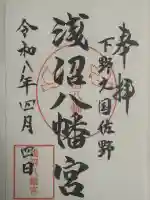 奉拝
下野之国佐野
浅沼八幡宮
令和八年四月
四日